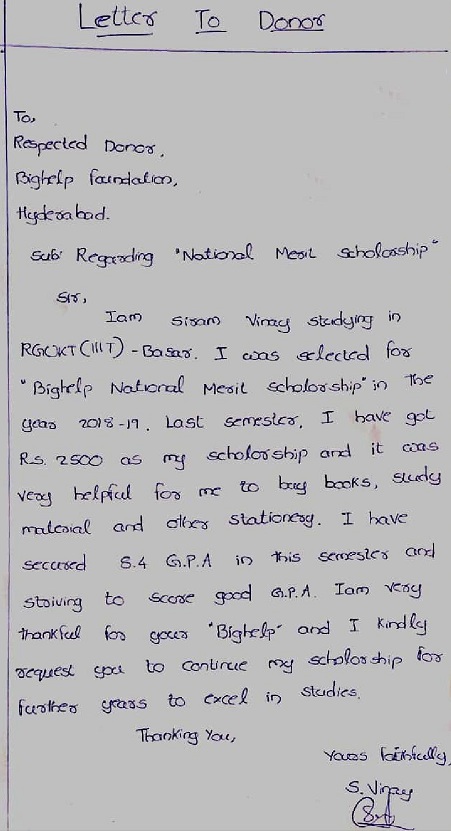 Letter To Donor
To,
Respected Donor,
Bighelp foundation,
Hyderabad.
Sub: Regarding "National Merit Scholorship"
Sir,
Iam Siram Vinay studying in
RGUKT(IIIT) - Basar. I was selected for
"Bighelp National Merit scholorship" in the
year 2018-19. Last semester, I have got
Rs. 2500 as my scholorship and it was
very helpful for me to buy books, study
material and other stationery. I have
secured 8.4 G.P.A in this semester and
striving to score good G.P.A. Iam very
thankful for your "Bighelp" and I kindly
request you to continue my scholorship for
further years to excel in studies.
Thanking You,
Yours faithfully,
S. Vinay